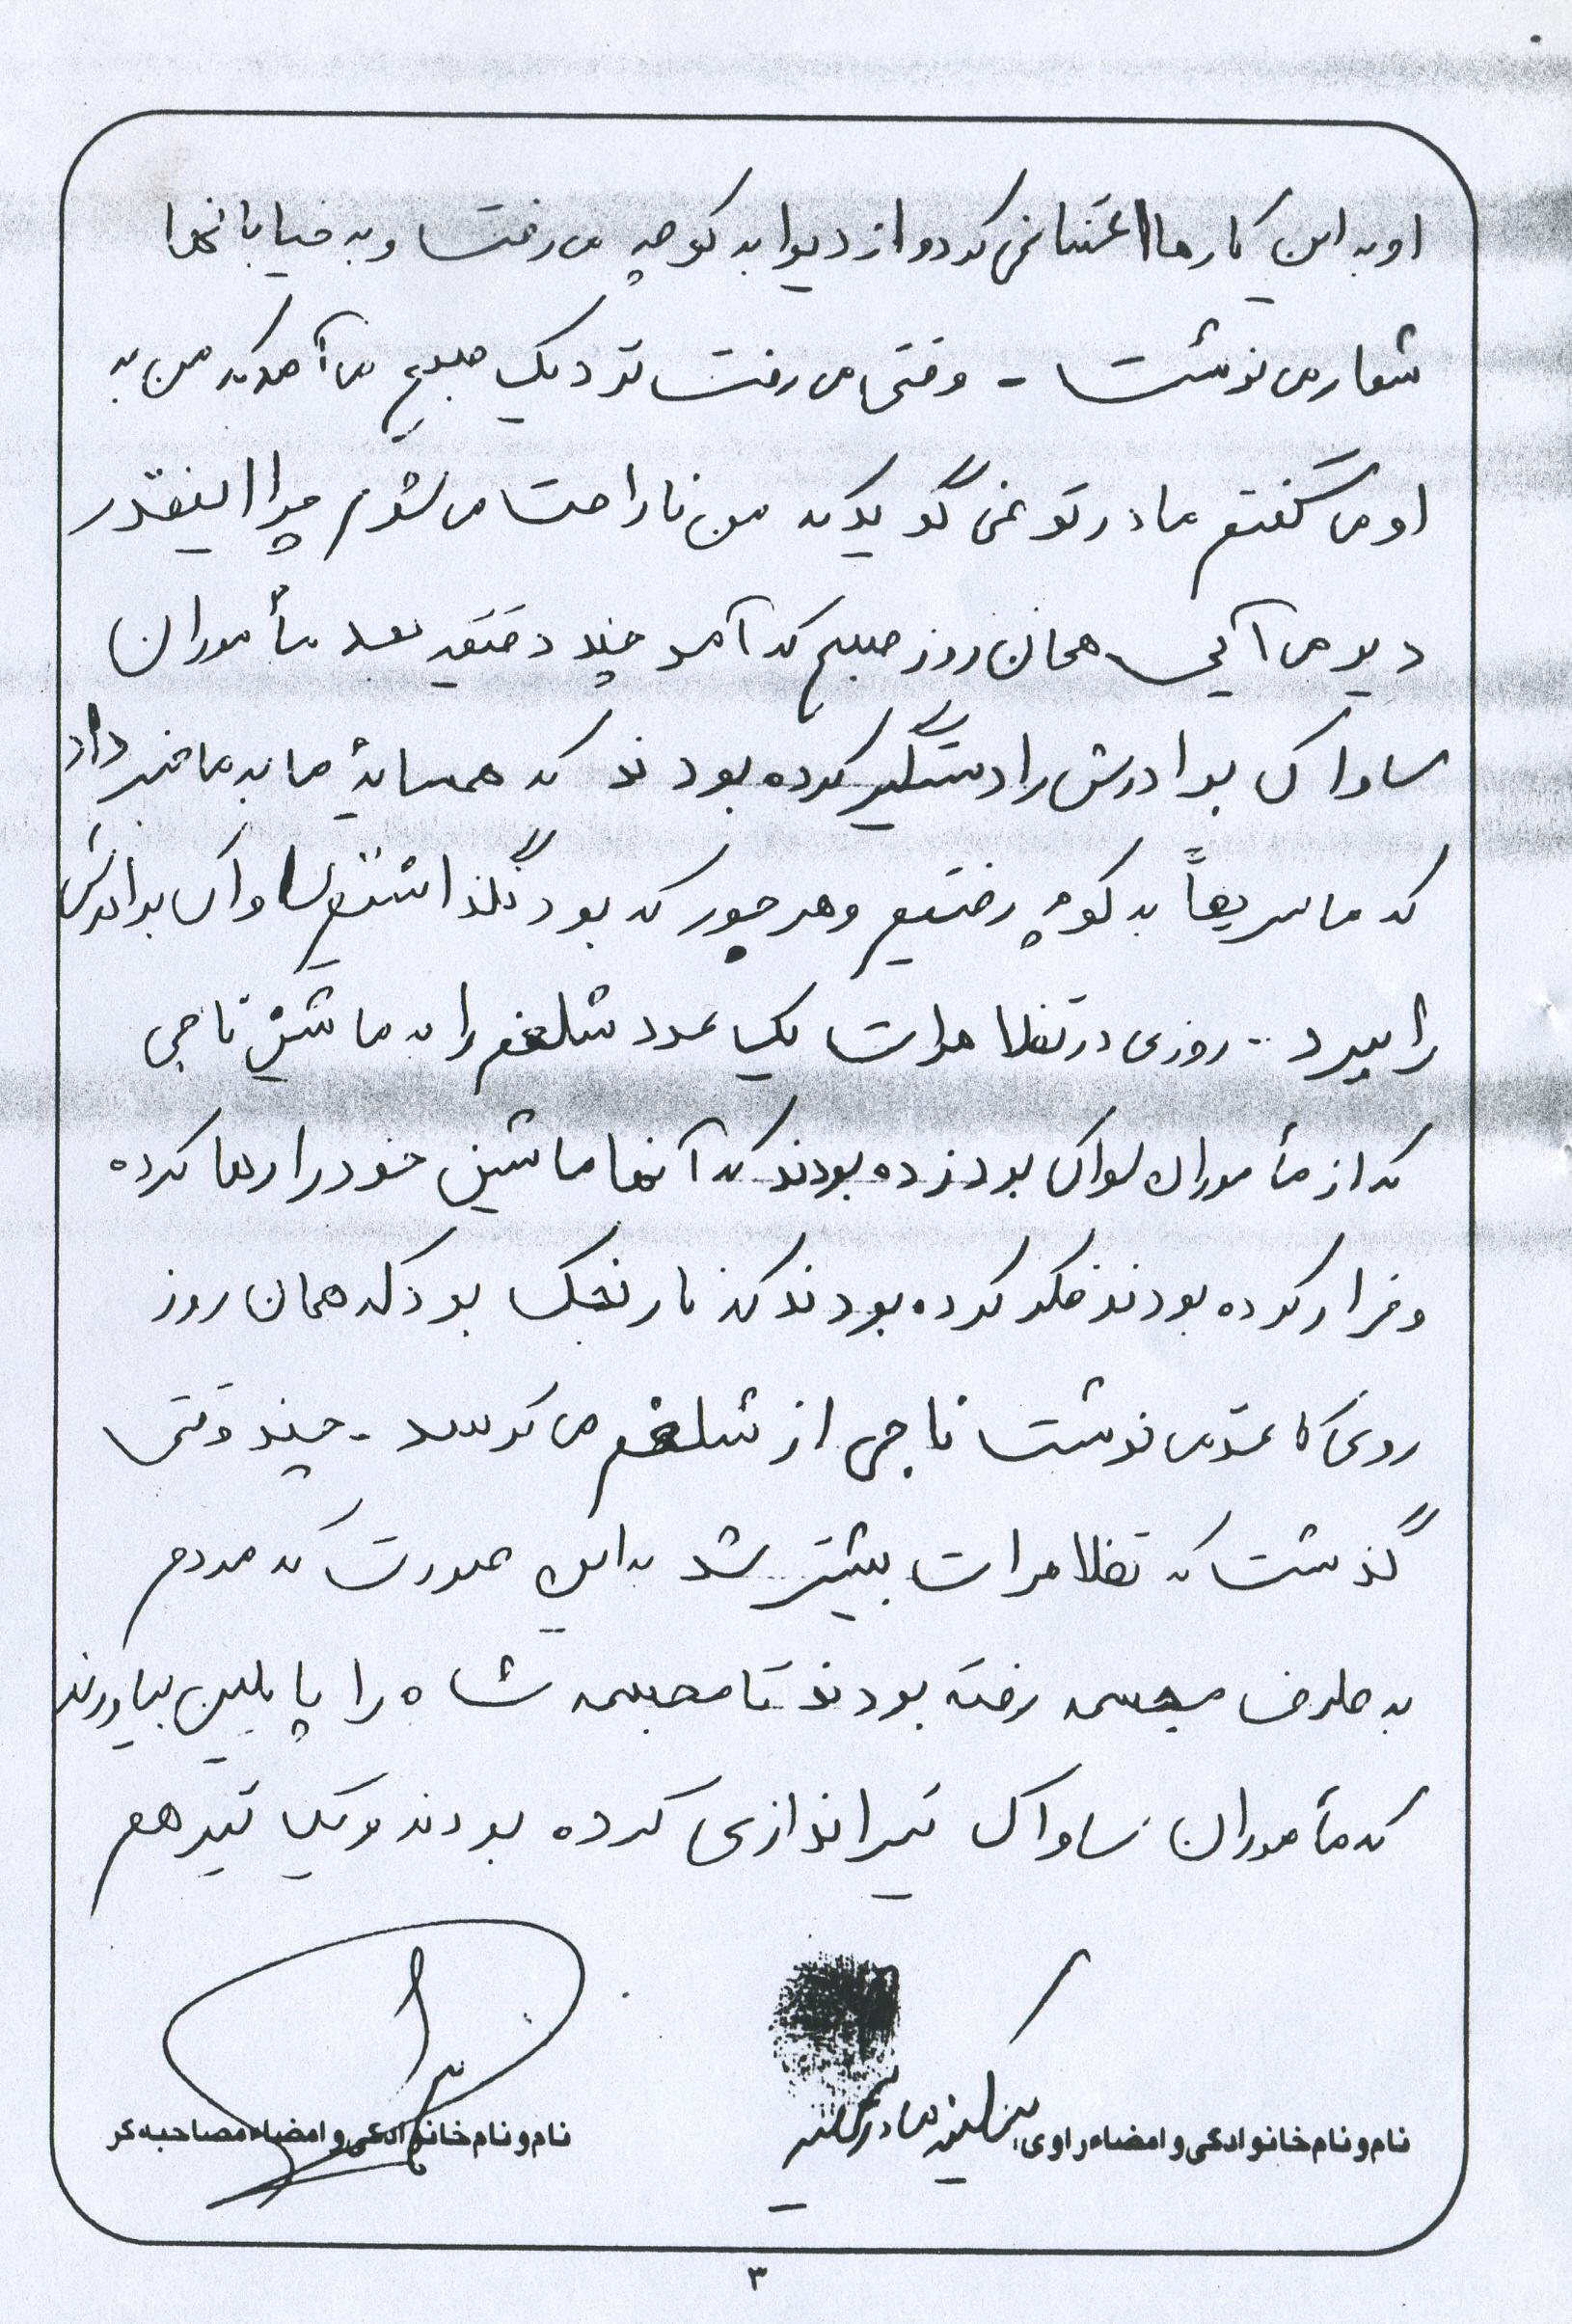 او به این کارها اعتنا نمی کرد و از دیوار به کوچه می رفت و به خیابانها
شعار می نوشت - وقتی می رفت نزدیک صبح می آمد که من به
او می گفتم مادر تو نمی گویی که من ناراحت می شوم چرا اینقدر
دیر می آیی همان روز صبح که آمد چند دقیقه بعد مأموران
ساواک برادرش را دستگیر کرده بودند که همسایۀ ما به ما خبر داد
که ما سریعاً به کوچه رفتیم و هر جور که بود نگذاشتیم ساواک برادرش
را ببرد - روزی در تظاهرات یک عدد شلغم را به ماشین ناجی
که از مأموران ساواک بود زده بودند که آنها ماشین خود را رها کرده
و فرار کرده بودند فکر کرده بودند که نارنجک بود که همان روز
روی کاغذ می نوشت ناجی از شلغم می ترسد - چند وقتی
گذشت که تظاهرات بیشتر شد به این صورت که مردم
به طرف مجسمه رفته بودند تا مجسمه شاه را پایین بیاورند
که مأموران ساواک تیراندازی کرده بودند و یک تیر هم
نام و نام خانوادگی و امضاء راوی:
نام و نام خانوادگی و امضاء مصاحبه گر
۳